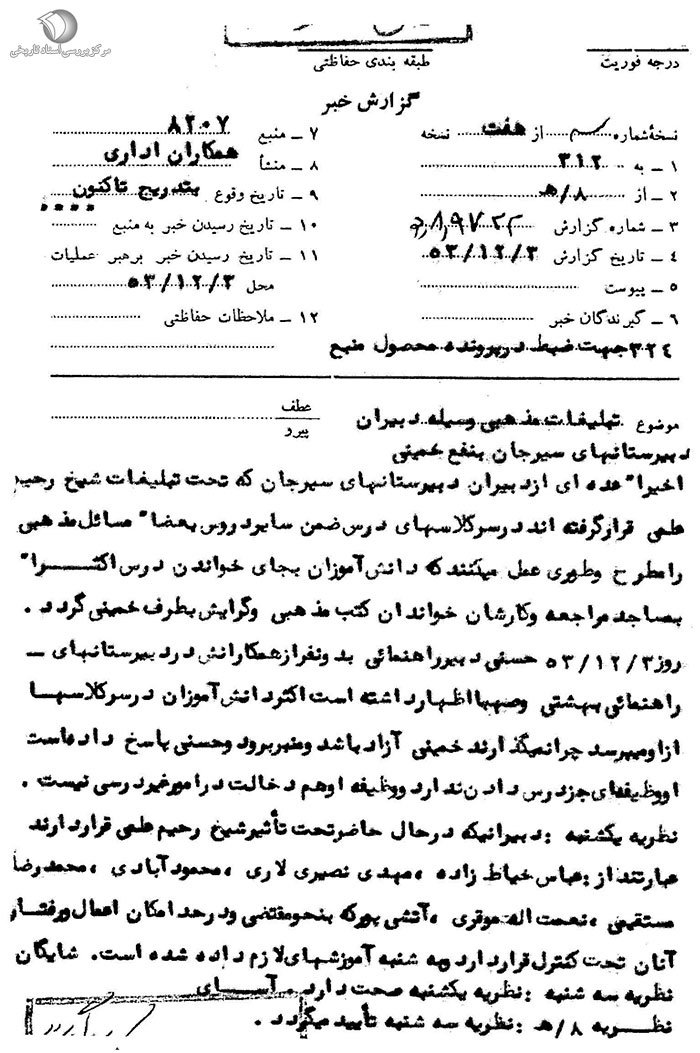 مرکز بررسی اسناد تاریخی
درجه فوریت
طبقه بندی حفاظتی
گزارش خبر
نسخهٔ شماره از هفت نسخه
۱ ـ به ۳۱۲
۲ ـ از ۸/ه
۳ ـ شماره گزارش
۴ ـ تاریخ گزارش ۵۳/۱۲/۳
۵ ـ پیوست
۶ ـ گیرندگان خبر
۷ ـ منبع ۸۲۰۷
۸ ـ منشأ همکاران اداری
۹ ـ تاریخ وقوع بتدریج تاکنون
۱۰ ـ تاریخ رسیدن خبر به منبع
۱۱ ـ تاریخ رسیدن خبر برهبر عملیات
محل ۵۳/۱۲/۳
۱۲ ـ ملاحظات حفاظتی
۳۲۴ جهت ضبط در پرونده محصول منبع
موضوع تبلیغات مذهبی وسیله دبیران
دبیرستانهای سیرجان بنفع خمینی
عطف
پیرو
اخیرا" عده ای ازدبیران دبیرستانهای سیرجان که تحت تبلیغات شیخ رحیم
علمی قرارگرفته اند درسرکلاسهای درس ضمن سایردروس بعضا" مسائل مذهبی
رامطرح وطوری عمل میکنند که دانش آموزان بجای خواندن درس اکثـــرا"
بمساجد مراجعه وکارشان خواندن کتب مذهبی وگرایش بطرف خمینی گردد .
روز ۵۳/۱۲/۳ حسنی دبیرراهنمائی بدونفرازهمکارانش دردبیرستانهای ـ
راهنمائی بهشتی وصهبا اظهارداشته است اکثردانش آموزان درسرکلاسهـا
ازاومیپرسد چرانمیگذارند خمینی آزادباشد ومنبربرود وحسنی پاسخ داده است
اووظیفه ای جزدرس دادن ندارد ووظیفه اوهم دخالت درامورغیردرسی نیست .
نظریه یکشنبه : دبیرانیکه درحال حاضرتحت تأثیرشیخ رحیم علمی قراردارند
عبارتند از : عباس خیاط زاده ، مهدی نصیری لاری ، محمودآبادی ، محمدرضا
مستقیمی ، نعمت اله موقری ، آتشی پورکه بنحومقتضی ودرحد امکان اعمال ورفتـار
آنان تحت کنترل قراردارد وبه شنبه آموزشهای لازم داده شده است. شایگان
نظریه سه شنبه : نظریه یکشنبه صحت دارد . آســای
نظـــریه ۸/ه : نظریه سه شنبه تأیید میگردد .